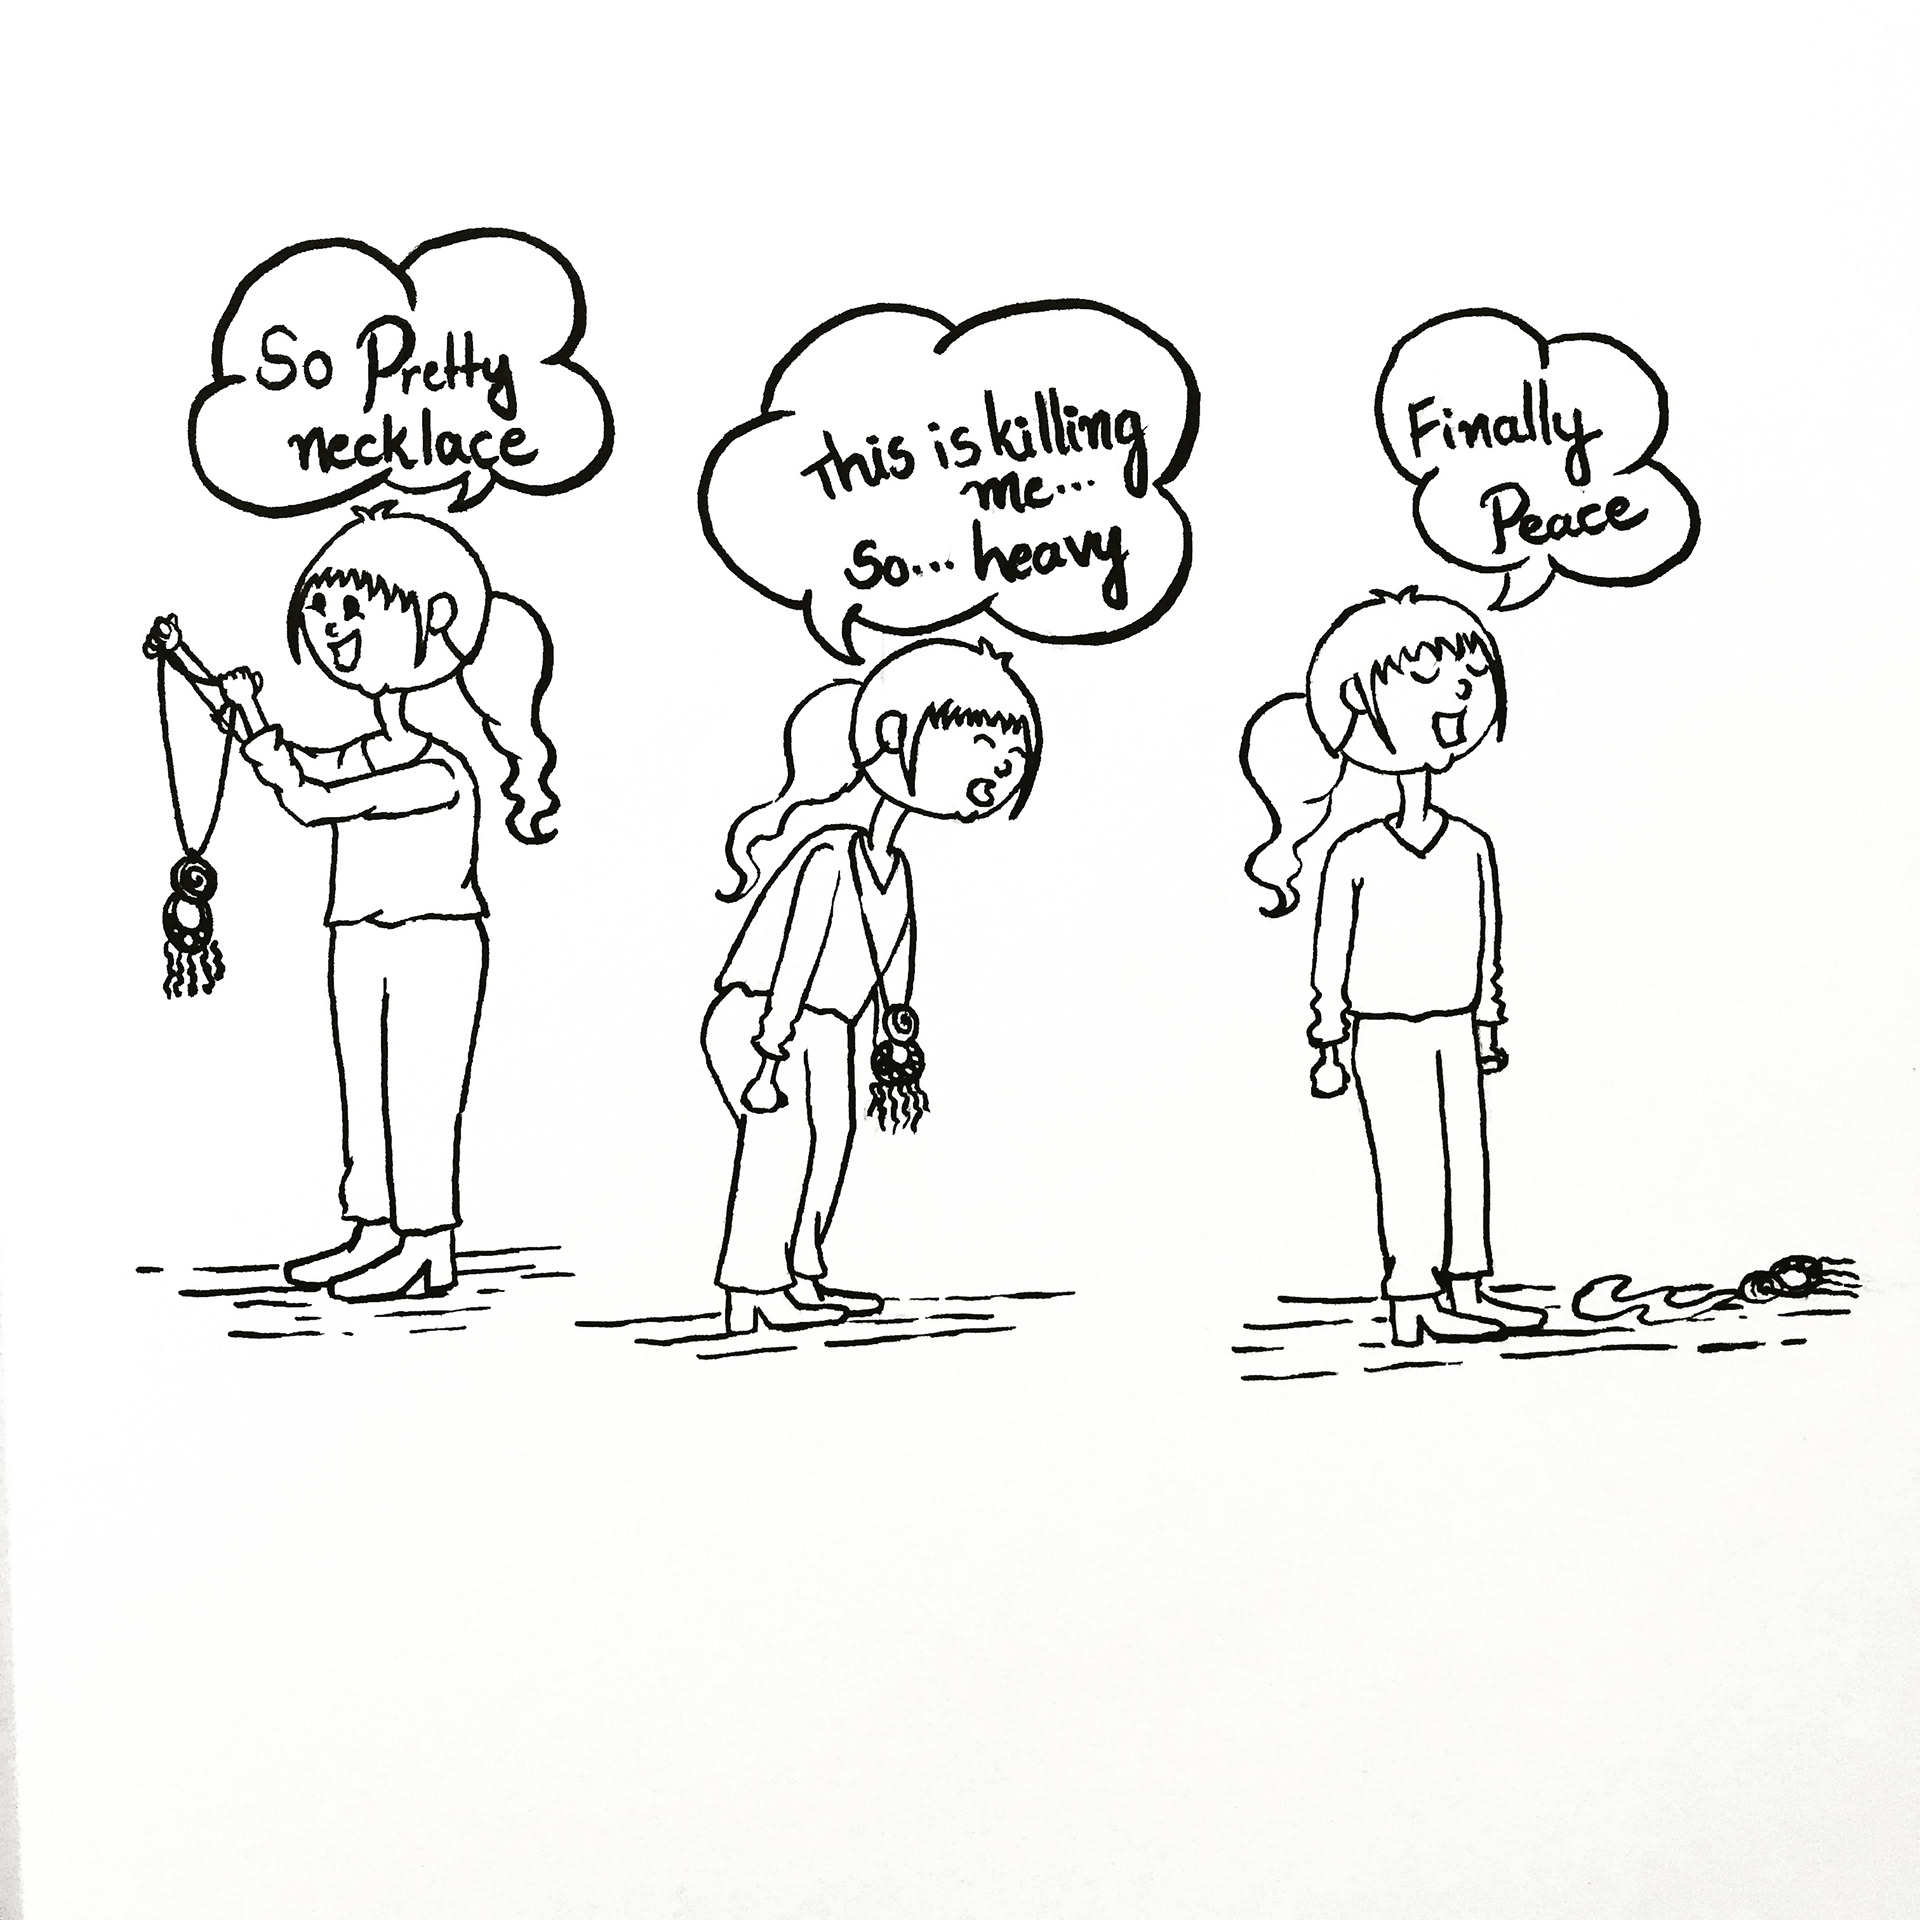 So Pretty
necklace
This is killing
me...
So... heavy
Finally
Peace